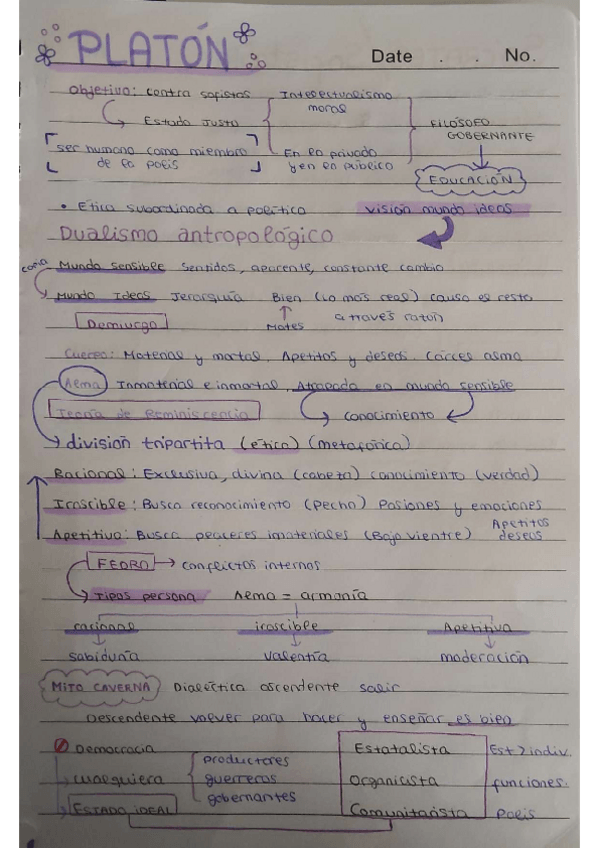 PLATÓN
Date . . No.
Objetivo: contra sofistas Intelectualismo moral
Estado Justo
FILÓSOFO GOBERNANTE
ser humano como miembro de la polis
En lo privado y en lo público
EDUCACIÓN
• Ética subordinada a política visión mundo ideas
Dualismo antropológico
copia Mundo sensible sentidos, aparente, constante cambio
Mundo Ideas Jerarquía Bien (lo más real) causa es resto
Demiurgo Mates a través razón
Cuerpo: Material y mortal, Apetitos y deseos. Cárcel alma
Alma Inmaterial e inmortal, Atrapada en mundo sensible
Teoría de Reminiscencia conocimiento
división tripartita (ética) (metafórica)
Racional: Exclusiva, divina (cabeza) conocimiento (verdad)
Irascible: Busca reconocimiento (pecho) Pasiones y emociones
Apetitivo: Busca placeres imateriales (Bajo vientre) Apetitos deseos
FEDRO → conflictos internos
Tipos persona Alma = armonía
racional irascible Apetitiva
sabiduría valentía moderación
MITO CAVERNA Dialéctica ascendente salir
Descendente volver para hacer y enseñar es bien
Democracia productores Estatalista Est > indiv.
cualquiera guerreros Organicista funciones.
ESTADO IDEAL gobernantes Comunitarista Polis